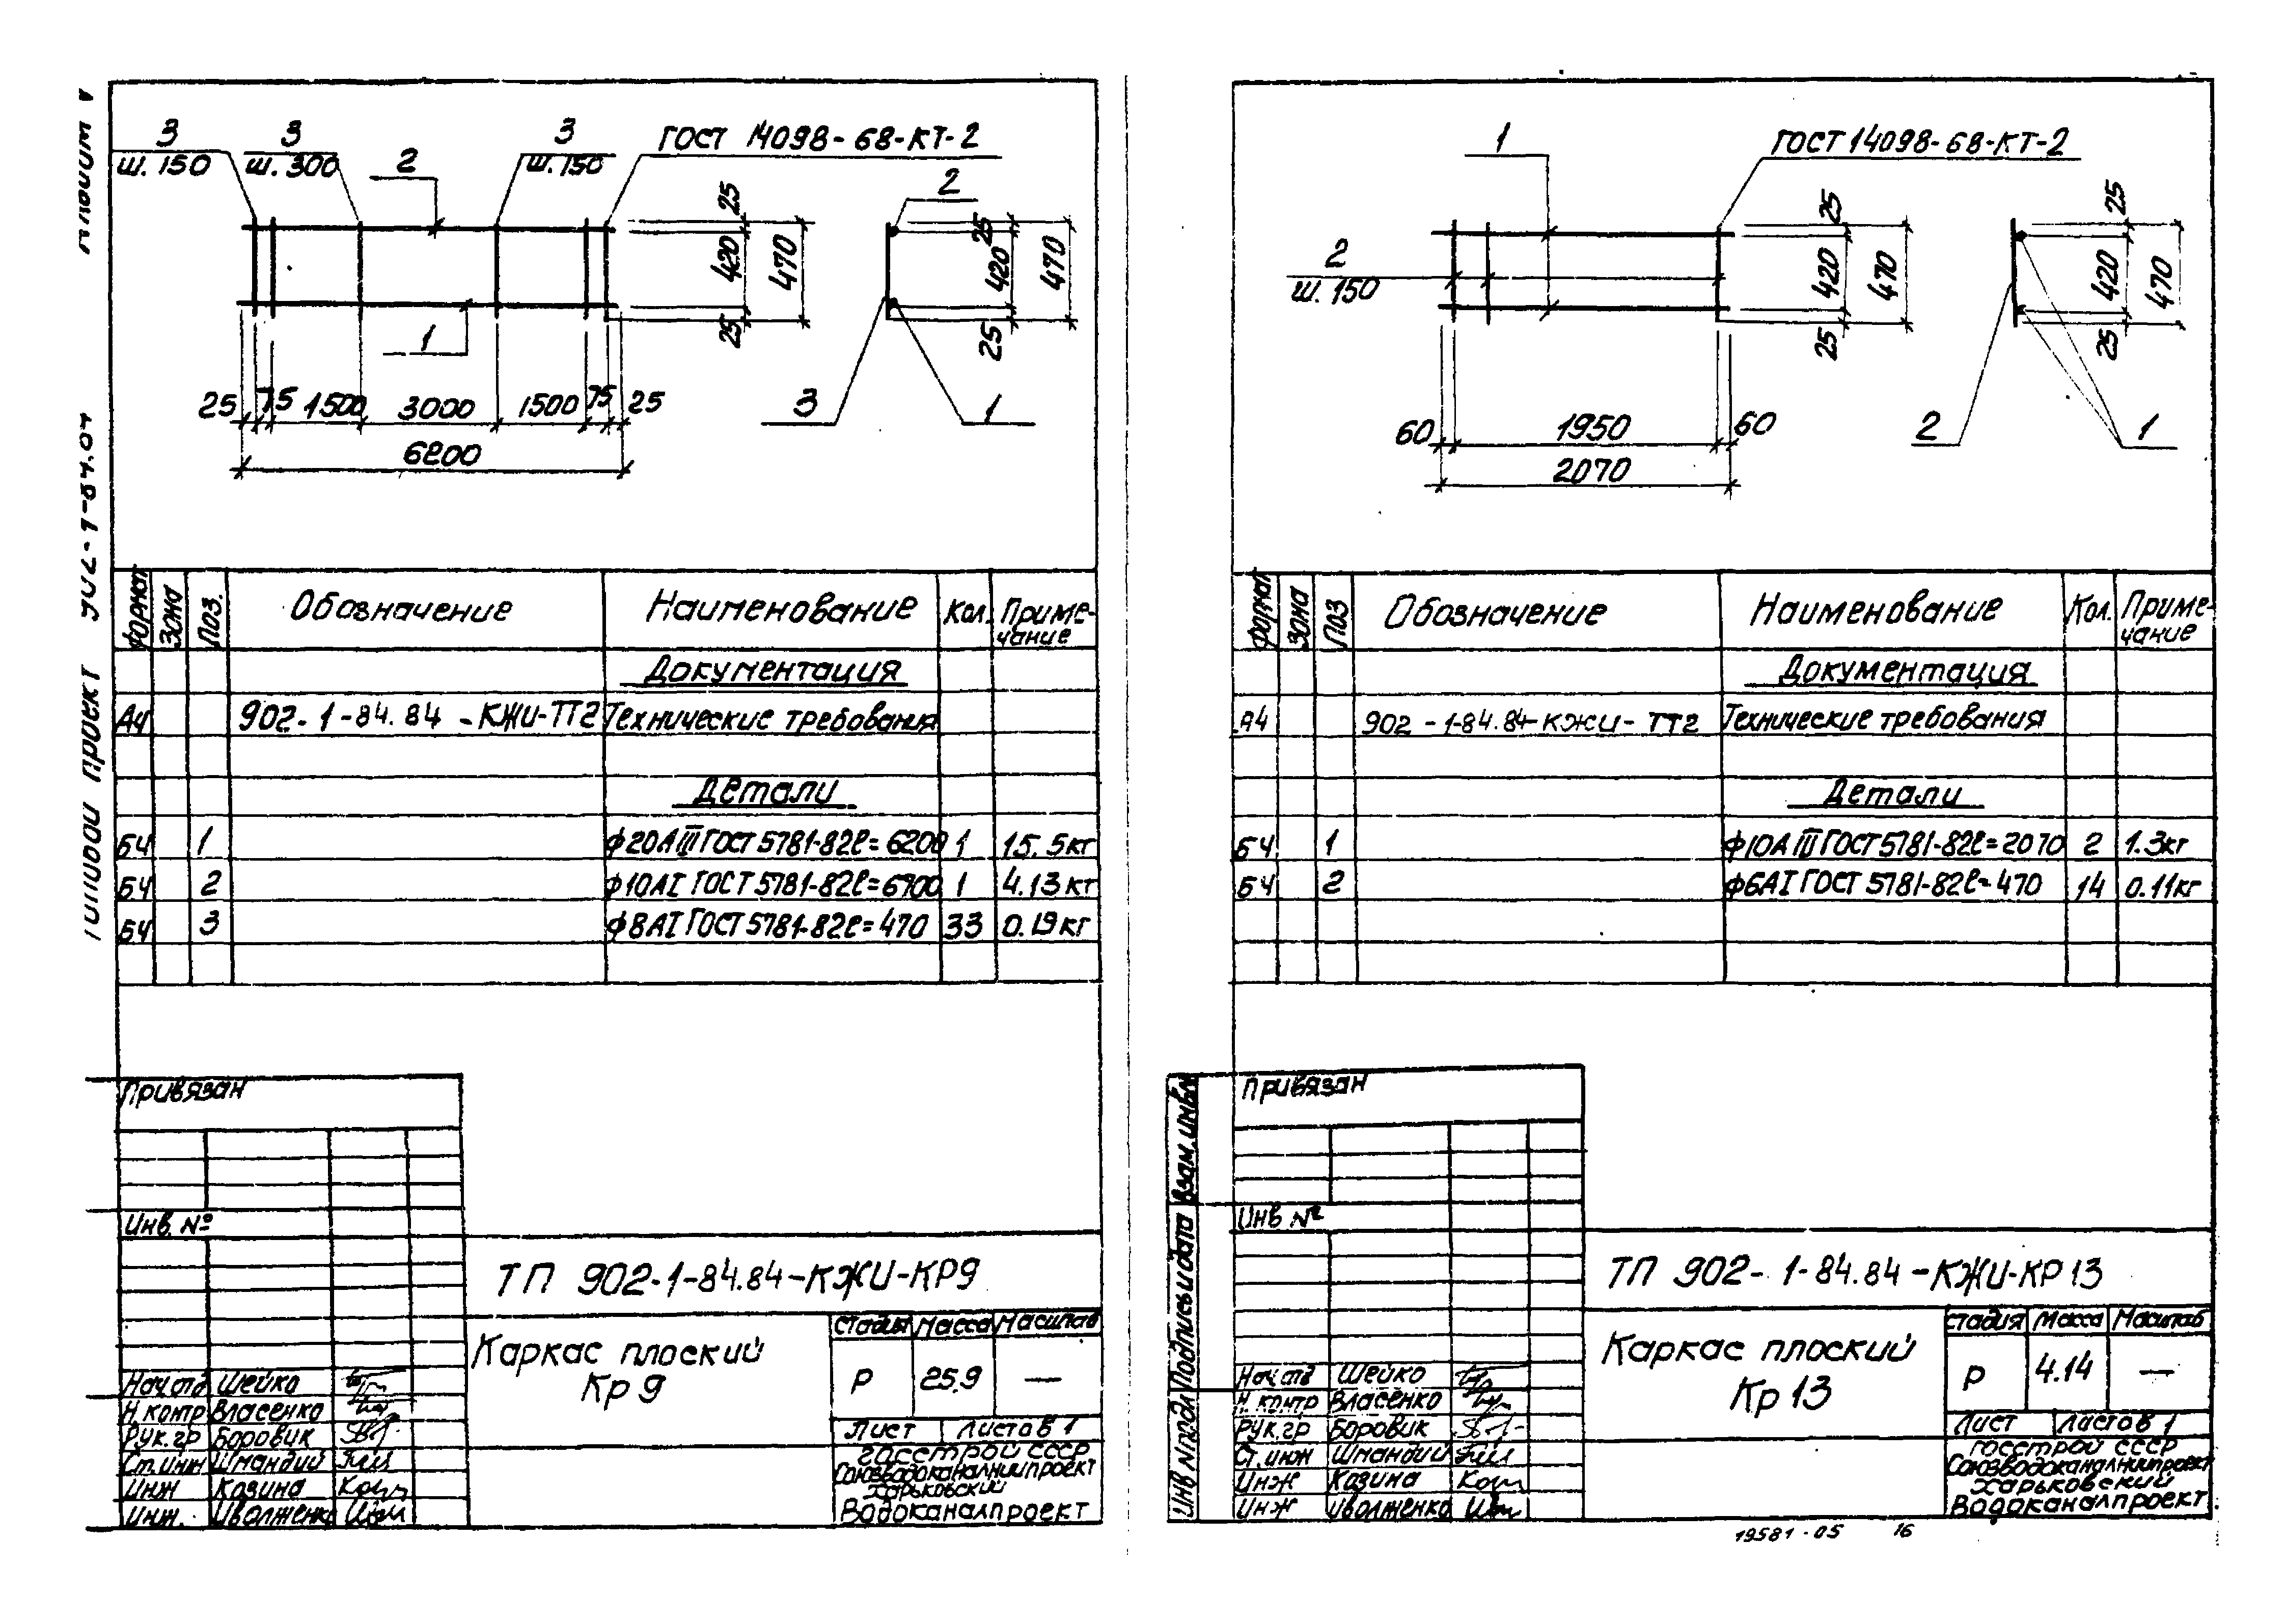 Типовой проект 902-1-84.84 Альбом V
3
ш. 150
3
ш. 300
2
3
ш. 150
ГОСТ 14098-68-КТ-2
1
25
420
470
25
2
25
420
470
25
3
1
25 75 1500 3000 1500 75 25
6200
Формат Зона Поз. Обозначение Наименование Кол. Приме-
чание
Документация
А4 902-1-84.84-КЖИ-ТТ2 Технические требования
Детали
БЧ 1 ф20АIII ГОСТ 5781-82 ℓ=6200 1 15.5кг
БЧ 2 ф10АI ГОСТ 5781-82 ℓ=6700 1 4.13кг
БЧ 3 ф8АI ГОСТ 5781-82 ℓ=470 33 0.19кг
Привязан
Инв. №
ТП 902-1-84.84-КЖИ-КР9
Каркас плоский
Кр 9
Стадия Масса Масштаб
Р 25.9 —
Лист Листов 1
Госстрой СССР
Союзводоканалниипроект
Харьковский
Водоканалпроект
Нач.отд Шейко
Н.контр Власенко
Рук.гр Боровик
Ст.инж Шмандий
Инж Казина
Инж. Иволженко
1
ГОСТ 14098-68-КТ-2
2
ш. 150
25
420
470
25
25
420
470
25
2
1
60 1950 60
2070
Формат Зона Поз Обозначение Наименование Кол. Приме-
чание
Документация
А4 902-1-84.84-КЖИ-ТТ2 Технические требования
Детали
БЧ 1 ф10АIII ГОСТ 5781-82 ℓ=2070 2 1.3кг
БЧ 2 ф6АI ГОСТ 5781-82 ℓ=470 14 0.11кг
Привязан
Инв №
Инв № подл Подпись и дата Взам.инв№
ТП 902-1-84.84-КЖИ-КР13
Каркас плоский
Кр 13
Стадия Масса Масштаб
Р 4.14 —
Лист Листов 1
Госстрой СССР
Союзводоканалниипроект
Харьковский
Водоканалпроект
Нач.отд Шейко
Н.контр Власенко
Рук.гр Боровик
Ст.инж Шмандий
Инж Казина
Инж Иволженко
19581-05 16